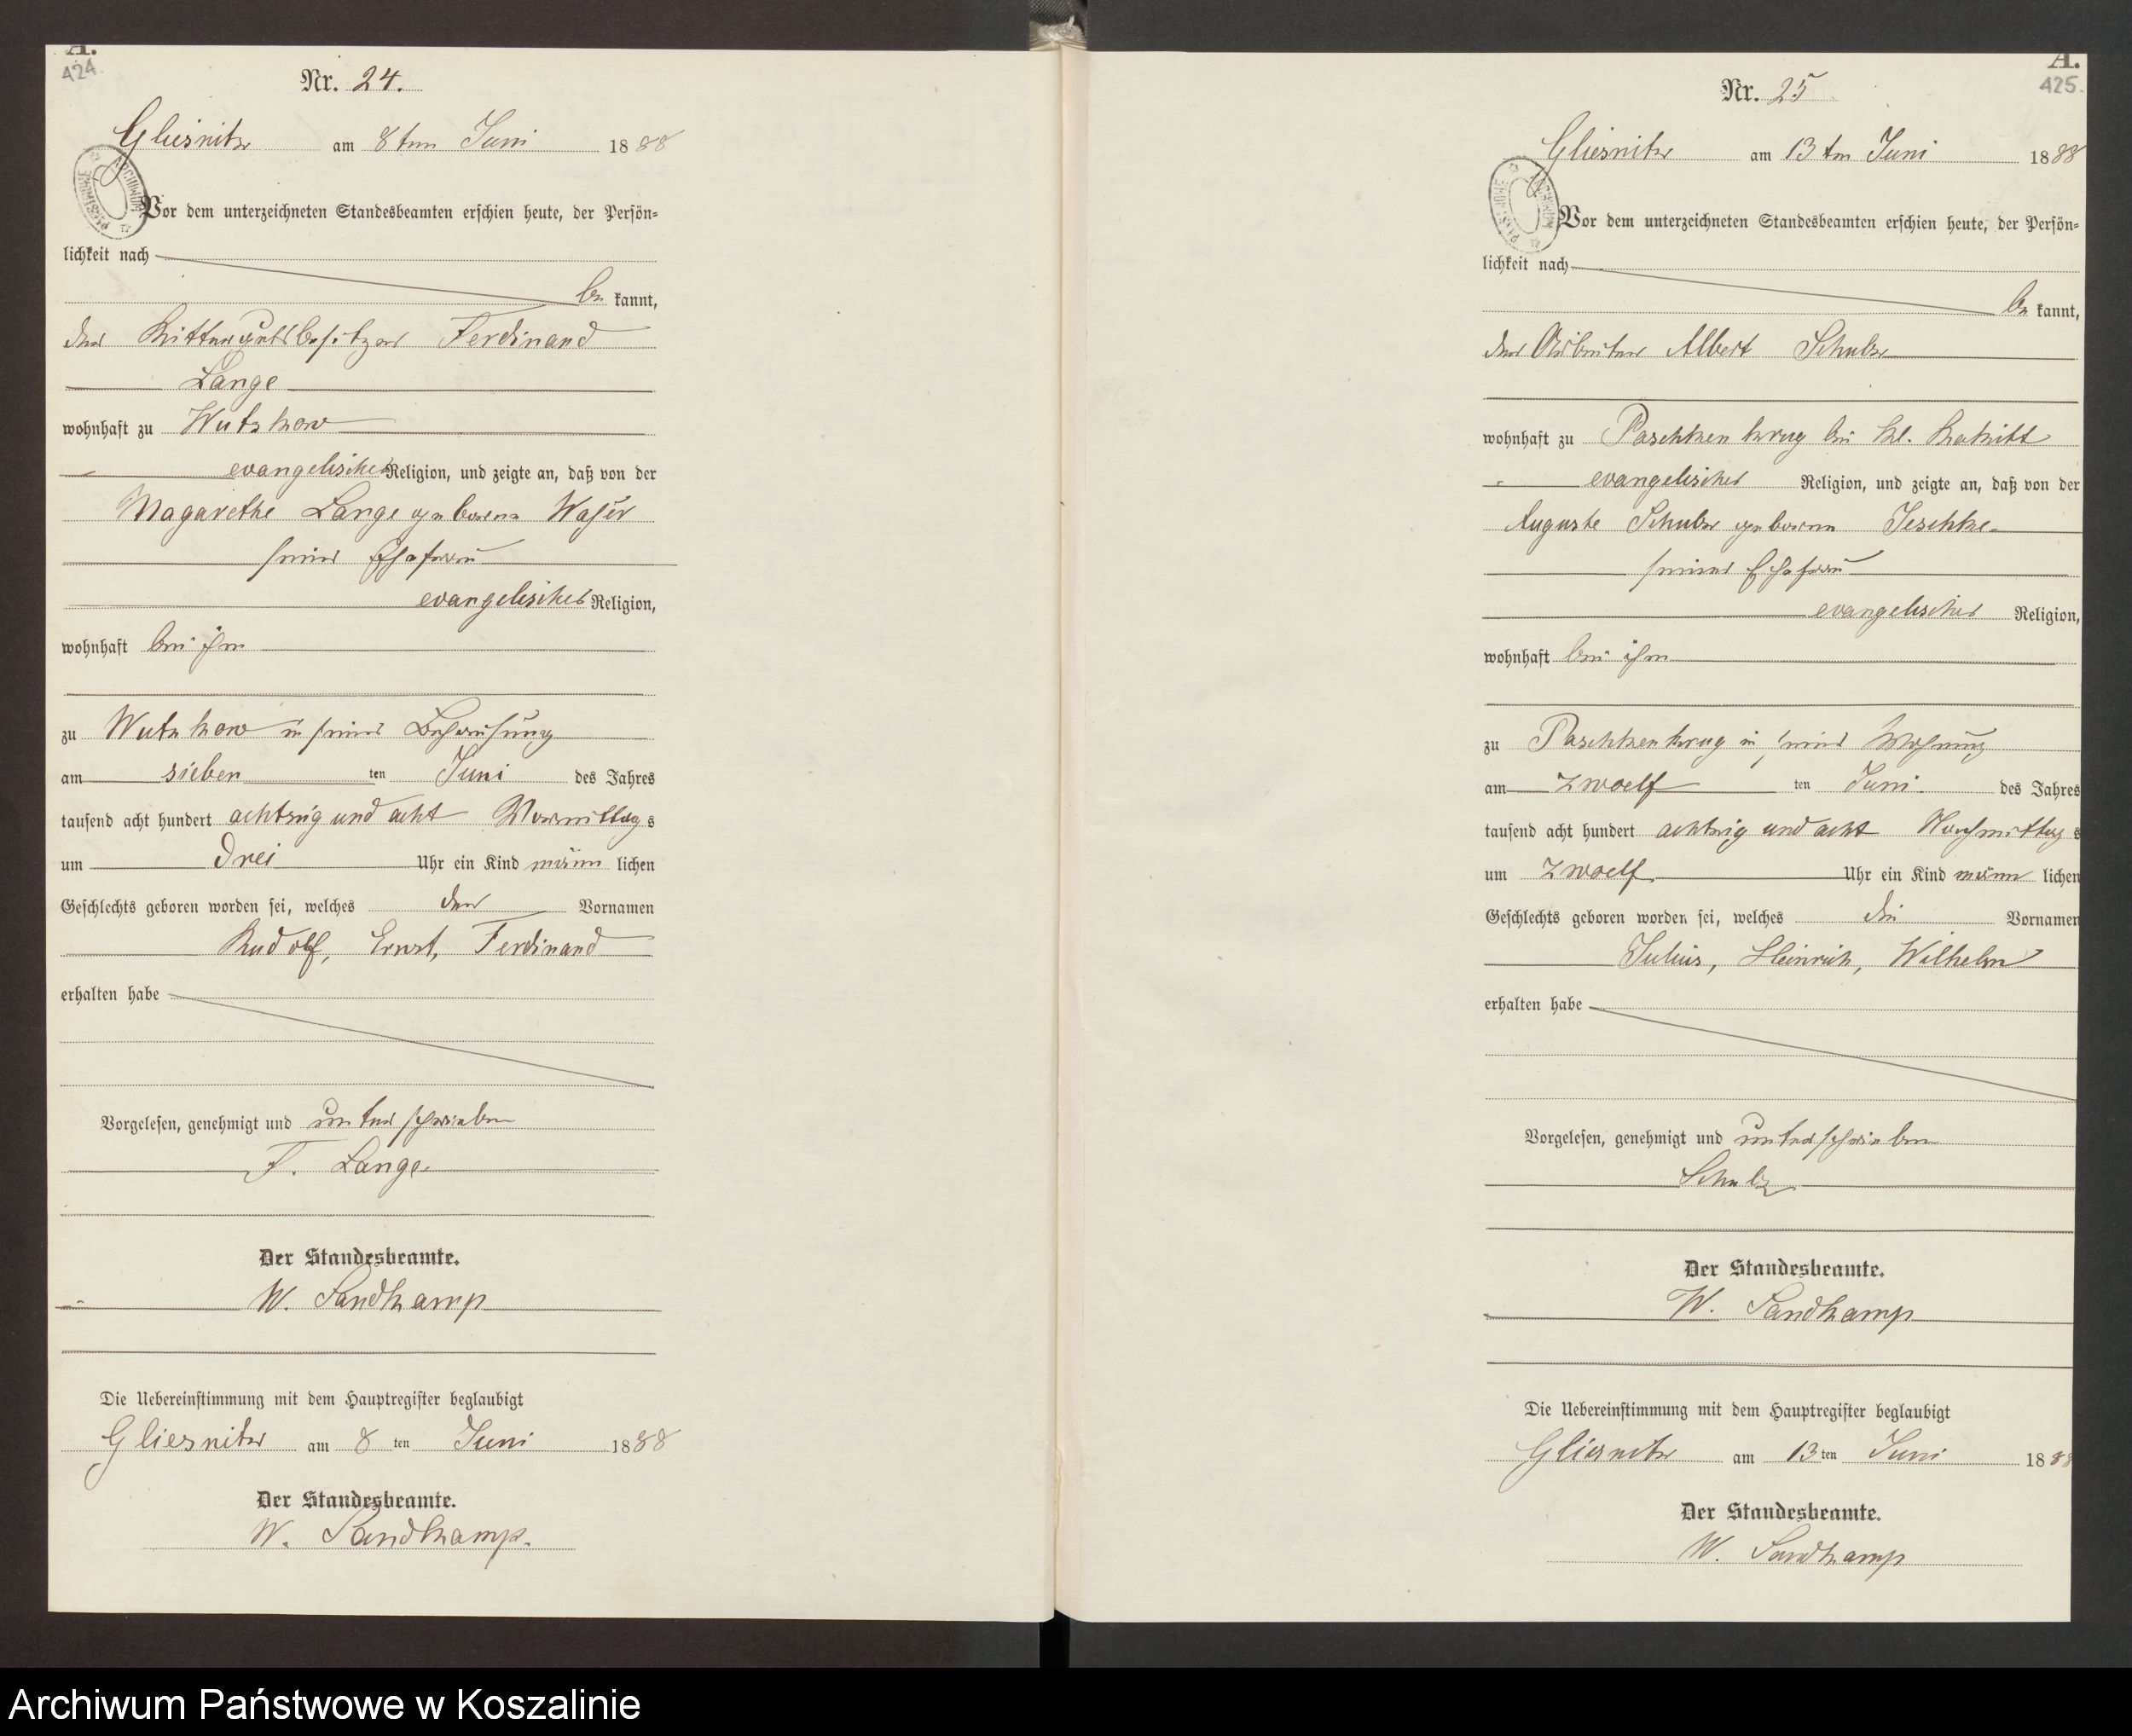 A.
424.
Nr. 24.
Gliesnitz am 8ten Juni 1888
Vor dem unterzeichneten Standesbeamten erschien heute, der Persön=
lichkeit nach
be kannt,
der Rittergutsbesitzer Ferdinand
Lange
wohnhaft zu Wutzkow
evangelischer Religion, und zeigte an, daß von der
Magarethe Lange geborene
seiner Ehefrau
evangelischer Religion,
wohnhaft bei ihm
zu Wutzkow in seiner Behausung
am sieben ten Juni des Jahres
tausend acht hundert achtzig und acht Vormittag s
um drei Uhr ein Kind männ lichen
Geschlechts geboren worden sei, welches den Vornamen
Rudolf, Ernst, Ferdinand
erhalten habe
Vorgelesen, genehmigt und unterschrieben
F. Lange.
Der Standesbeamte.
W. Sandkamp
Die Uebereinstimmung mit dem Hauptregister beglaubigt
Gliesnitz am 8 ten Juni 1888
Der Standesbeamte.
W. Sandkamp.
A.
425.
Nr. 25
Gliesnitz am 13ten Juni 1888
Vor dem unterzeichneten Standesbeamten erschien heute, der Persön=
lichkeit nach
be kannt,
der Arbeiter Albert Schulz
wohnhaft zu Paschkenkrug bei Kl. Rakitt
evangelischer Religion, und zeigte an, daß von der
Auguste Schulz geborene Jeschke
seiner Ehefrau
evangelischer Religion,
wohnhaft bei ihm
zu Paschkenkrug in seiner Wohnung
am zwoelf ten Juni des Jahres
tausend acht hundert achtzig und acht Nachmittag s
um zwoelf Uhr ein Kind männ lichen
Geschlechts geboren worden sei, welches die Vornamen
Julius, Heinrich, Wilhelm
erhalten habe
Vorgelesen, genehmigt und unterschrieben
Schulz
Der Standesbeamte.
W. Sandkamp
Die Uebereinstimmung mit dem Hauptregister beglaubigt
Gliesnitz am 13 ten Juni 1888
Der Standesbeamte.
W. Sandkamp
Archiwum Państwowe w Koszalinie